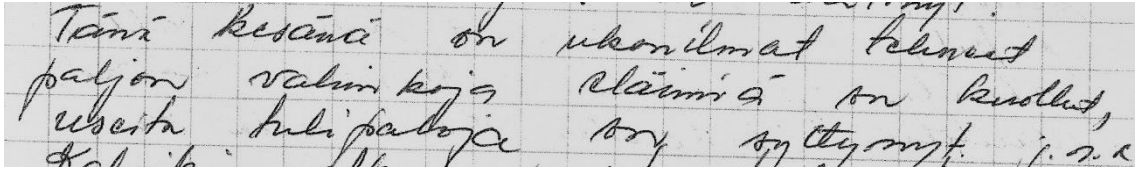 Tänä kesänä on ukonilmat tehneet
paljon vahinkoja eläimiä on kuollut,
useita tulipaloja on syttynyt. j.n.e